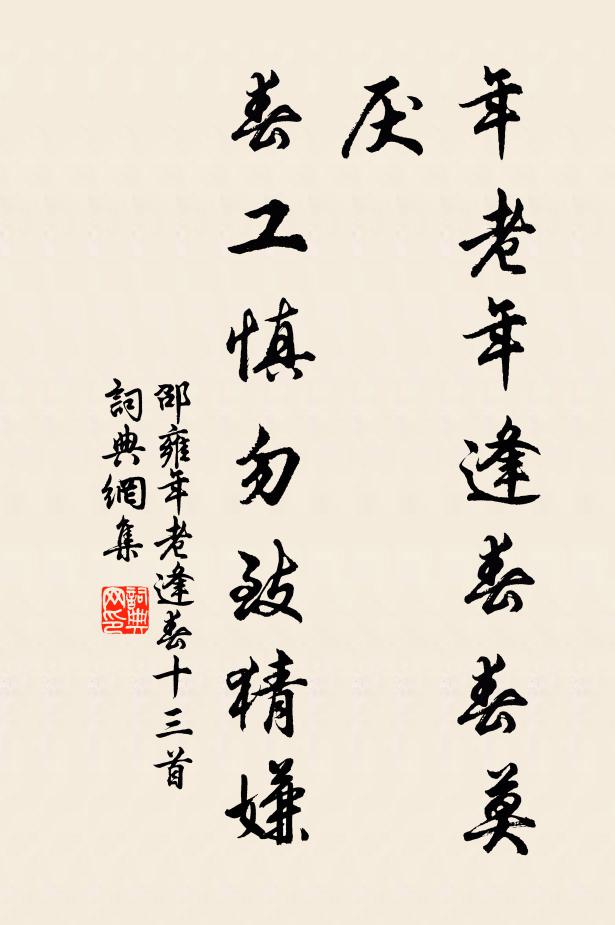 年老年逢春春莫
厌
春工慎勿致猜嫌
邵雍年老逢春十三首
詞典網集
詞典
网印